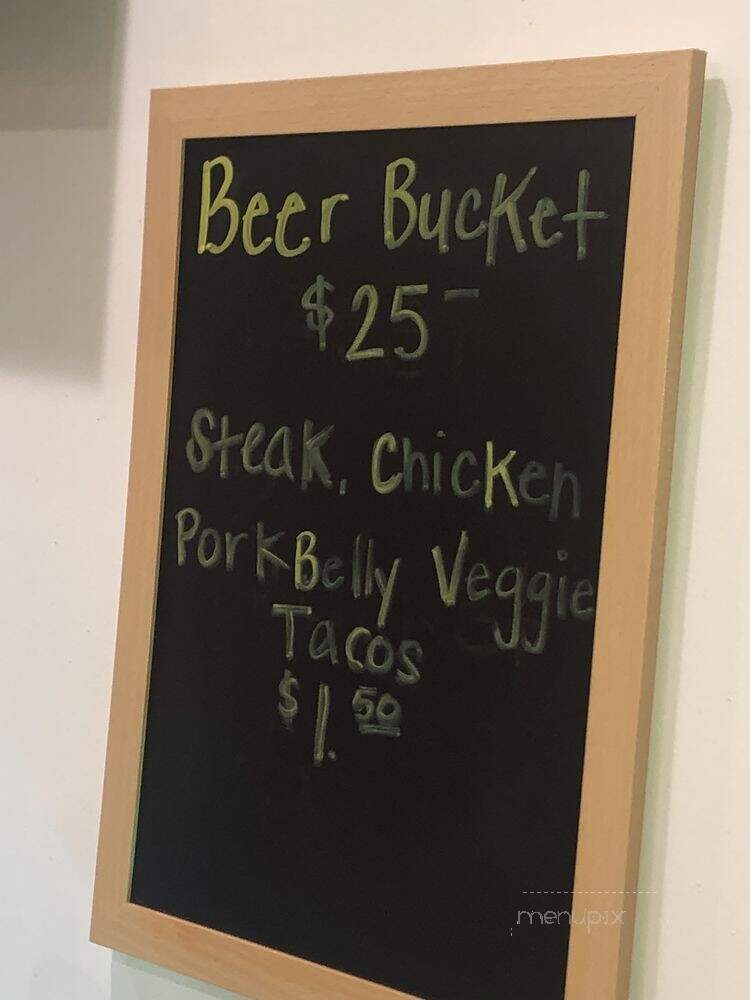 Beer Bucket
$25-
Steak, Chicken
Pork Belly Veggie
Tacos
$1.50
menupix